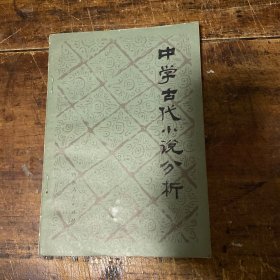 中学古代小说分析